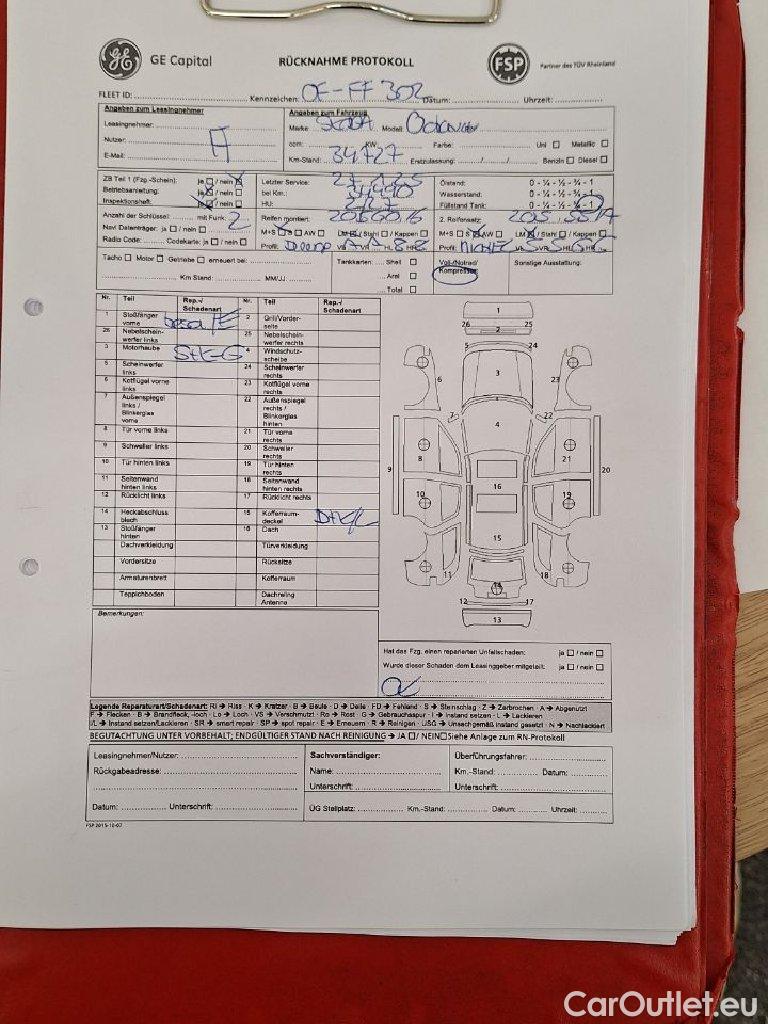 GE Capital
RÜCKNAHME PROTOKOLL
FSP
Partner des TÜV Rheinland
FLEET ID: Kennzeichen: OF-FF 302 Datum: Uhrzeit:
Angaben zum Leasingnehmer
Leasingnehmer:
Nutzer:
E-Mail:
Angaben zum Fahrzeug
Marke Skoda Modell: Octavia
ccm: KW: Farbe: Uni Metallic
Km-Stand: 34727 Erstzulassung: / / Benzin Diesel
ZB Teil 1 (Fzg.-Schein): ja / nein
Betriebsanleitung: ja / nein
Inspektionsheft: ja / nein
Letzter Service:
bei Km:
HU:
Ölstand: 0 - ¼ - ½ - ¾ - 1
Wasserstand: 0 - ¼ - ½ - ¾ - 1
Füllstand Tank: 0 - ¼ - ½ - ¾ - 1
Anzahl der Schlüssel: mit Funk: 2
Navi Datenträger: ja / nein
Radio Code: Codekarte: ja / nein
Reifen montiert:
M+S S AW LM / Stahl / Kappen
Profil: VL VR HL HR
2. Reifensatz:
M+S S AW LM / Stahl / Kappen
Profil: VL VR HL HR
Tacho Motor Getriebe erneuert bei:
Km Stand: MM/JJ:
Tankkarten: Shell
Aral
Total
Voll-/Notrad/
Kompressor
Sonstige Ausstattung:
Nr. Teil Rep.-/ Schadenart Nr. Teil Rep.-/ Schadenart
1 Stoßfänger vorne 2 Grill/Vorderseite
26 Nebelscheinwerfer links 25 Nebelscheinwerfer rechts
3 Motorhaube 4 Windschutzscheibe
5 Scheinwerfer links 24 Scheinwerfer rechts
6 Kotflügel vorne links 23 Kotflügel vorne rechts
7 Außenspiegel links / Blinkerglas vorne 22 Außenspiegel rechts / Blinkerglas hinten
8 Tür vorne links 21 Tür vorne rechts
9 Schweller links 20 Schweller rechts
10 Tür hinten links 19 Tür hinten rechts
11 Seitenwand hinten links 18 Seitenwand hinten rechts
12 Rücklicht links 17 Rücklicht rechts
14 Heckabschlussblech 15 Kofferraumdeckel
13 Stoßfänger hinten 16 Dach
Dachverkleidung Türverkleidung
Vordersitze Rücksitze
Armaturenbrett Kofferraum
Teppichboden Dachreling Antenne
1
26 25
2
5 24
3
6 23
7 22
4
8 21
9 20
16
10 19
15
11 18
14
12 17
13
Bemerkungen:
Hat das Fzg. einen reparierten Unfallschaden: ja / nein
Wurde dieser Schaden dem Leasinggeber mitgeteilt: ja / nein
Legende Reparaturart/Schadenart: RI → Riss - K → Kratzer - B → Beule - D → Delle - FD → Fehland - S → Steinschlag - Z → Zerbrochen - A → Abgenutzt
F → Flecken - B → Brandfleck, -loch - Lo → Loch - VS → Verschmutzt - Ro → Rost - G → Gebrauchsspur - I → Instand setzen - L → Lackieren
I/L → Instand setzen/Lackieren - SR → smart repair - SP → spot repair - E → Erneuern - R → Reinigen - USG → Unsach gemäß instand gesetzt - N → Nachlackiert
BEGUTACHTUNG UNTER VORBEHALT; ENDGÜLTIGER STAND NACH REINIGUNG → JA / NEIN Siehe Anlage zum RN-Protokoll
Leasingnehmer/Nutzer:
Rückgabeadresse:
Datum: Unterschrift:
Sachverständiger:
Name:
Unterschrift:
Überführungsfahrer:
Km.-Stand: Datum:
Unterschrift:
ÜG Stellplatz: Km.-Stand: Datum: Uhrzeit:
CarOutlet.eu